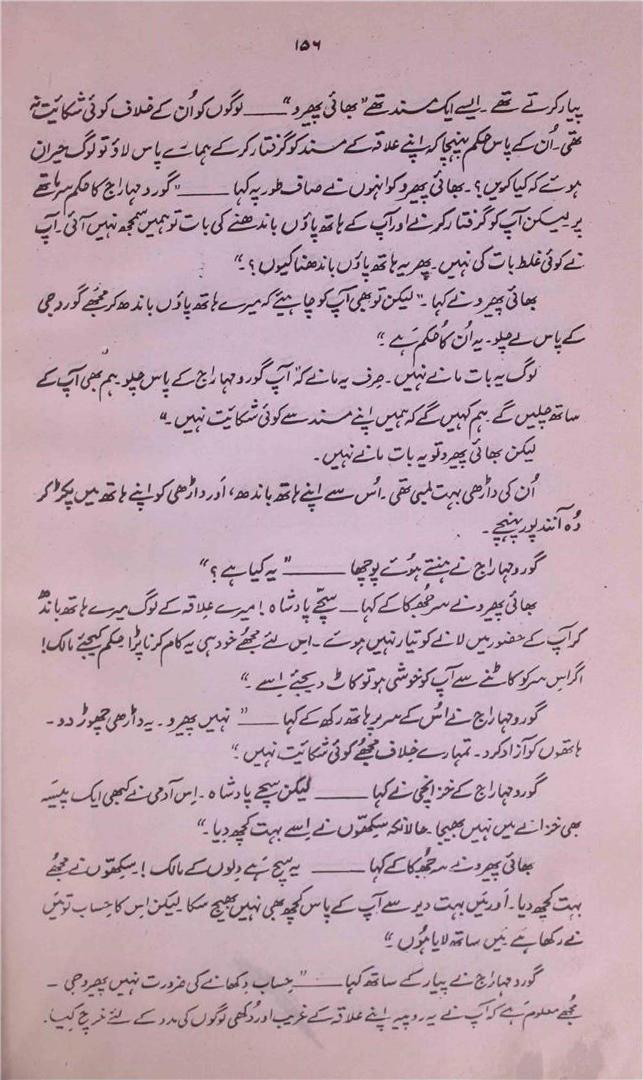 ۱۵۶
پیار کرتے تھے ۔ ایسے ایک مسند تھے ”بھائی پھیرو“ ــــــ لوگوں کو اُن کے خلاف کوئی شکائیت نہ
تھی ۔ اُن کے پاس حکم پہنچا کہ اپنے علاقہ کے مسند کو گرفتار کر کے ہمارے پاس لاؤ تو لوگ حیران
ہوئے کہ کیا کریں ؟ ۔ بھائی پھیرو کو انہوں نے صاف طور پہ کہا ــــــ ”گورو مہاراج کا حکم سر ماتھے
پر لیکن آپ کو گرفتار کرنے اور آپ کے ہاتھ پاؤں باندھنے کی بات تو ہمیں سمجھ نہیں آئی ۔ آپ
نے کوئی غلط بات کی نہیں ۔ پھر یہ ہاتھ پاؤں باندھنا کیوں ؟ ۔“
بھائی پھیرو نے کہا ۔ ”لیکن تو بھی آپ کو چاہیئے کہ میرے ہاتھ پاؤں باندھ کر مجھے گورو جی
کے پاس لے چلو ۔ یہ اُن کا حکم ہے ۔“
لوگ یہ بات مانے نہیں ۔ صرف یہ مانے کہ ”آپ گورو مہاراج کے پاس چلو ۔ ہم بھی آپ کے
ساتھ چلیں گے ۔ ہم کہیں گے کہ ہمیں اپنے مسند سے کوئی شکائیت نہیں ۔“
لیکن بھائی پھیرو تو یہ بات مانے نہیں ۔
اُن کی داڑھی بہت لمبی تھی ۔ اُس سے اپنے ہاتھ باندھ، اَور داڑھی کو اپنے ہاتھ میں پکڑ کر
وُہ آنند پور پہنچے ۔
گورو مہاراج نے ہنستے ہوئے پوچھا ــــــ ”یہ کیا ہے ؟“
بھائی پھیرو نے سر جھکا کے کہا ــــــ سچّے پادشاہ ! میرے علاقہ کے لوگ میرے ہاتھ باندھ
کر آپ کے حضور میں لانے کو تیار نہیں ہوئے ۔ اس لئے مجھے خود ہی یہ کام کرنا پڑا حکم کیجئے مالک !
اگر اس سر کو کاٹنے سے آپ کو خوشی ہو تو کاٹ دیجئے اِسے ۔“
گورو مہاراج نے اُس کے سر پر ہاتھ رکھ کے کہا ــــــ ”نہیں پھیرو ۔ یہ داڑھی چھوڑ دو ۔
ہاتھوں کو آزاد کرد ۔ تمہارے خلاف مجھے کوئی شکائیت نہیں ۔“
گورو مہاراج کے خزانچی نے کہا ــــــ لیکن سچے پادشاہ ۔ اِس آدمی نے کبھی ایک پیسَہ
بھی خزانے میں نہیں بھیجا ۔ حالانکہ سیکھوں نے اِسے بہت کچھ دیا ۔“
بھائی پھیرو نے سر جھُکا کے کہا ــــــ یہ سچ ہے دلوں کے مالک ! سیکھوں نے مجھے
بہت کچھ دیا ۔ اَور مَیں بہت دیر سے آپ کے پاس کچھ بھی نہیں بھیج سکا ۔ لیکن اِس کا حساب تو مَیں
نے رکھا ہے ۔ مَیں ساتھ لایا ہُوں ۔“
گورو مہاراج نے پیار کے ساتھ کہا ــــــ ”حساب دِکھانے کی ضرورت نہیں پھیرو جی ۔
مجھے معلوم ہے کہ آپ نے یہ روپیہ اپنے علاقہ کے غریب اور دُکھی لوگوں کی مدد کے لئے خرچ کِیا ۔